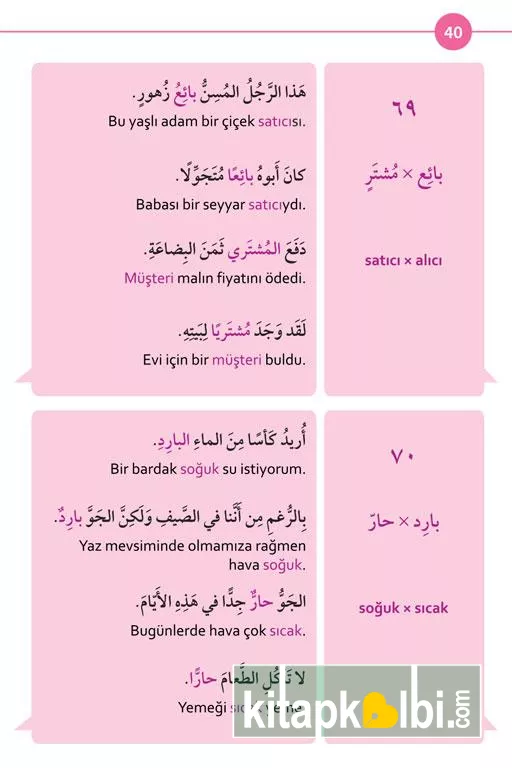 40
٦٩
بائِع × مُشتَرٍ
satıcı × alıcı
هَذا الرَّجُلُ المُسِنُّ بائِعُ زُهورٍ.
Bu yaşlı adam bir çiçek satıcısı.
كانَ أَبوهُ بائِعًا مُتَجَوِّلًا.
Babası bir seyyar satıcıydı.
دَفَعَ المُشتَري ثَمَنَ البِضاعَةِ.
Müşteri malın fiyatını ödedi.
لَقَد وَجَدَ مُشتَريًا لِبَيتِهِ.
Evi için bir müşteri buldu.
٧٠
بارِد × حارّ
soğuk × sıcak
أُريدُ كَأسًا مِنَ الماءِ البارِدِ.
Bir bardak soğuk su istiyorum.
بِالرُّغمِ مِن أَنَّنا في الصَّيفِ وَلَكِنَّ الجَوَّ بارِدٌ.
Yaz mevsiminde olmamıza rağmen
hava soğuk.
الجَوُّ حارٌّ جِدًّا في هَذِهِ الأَيّامَ.
Bugünlerde hava çok sıcak.
لا تَأكُلِ الطَّعامَ حارًّا.
Yemeği sıcak yeme.
kitapkalbi.com